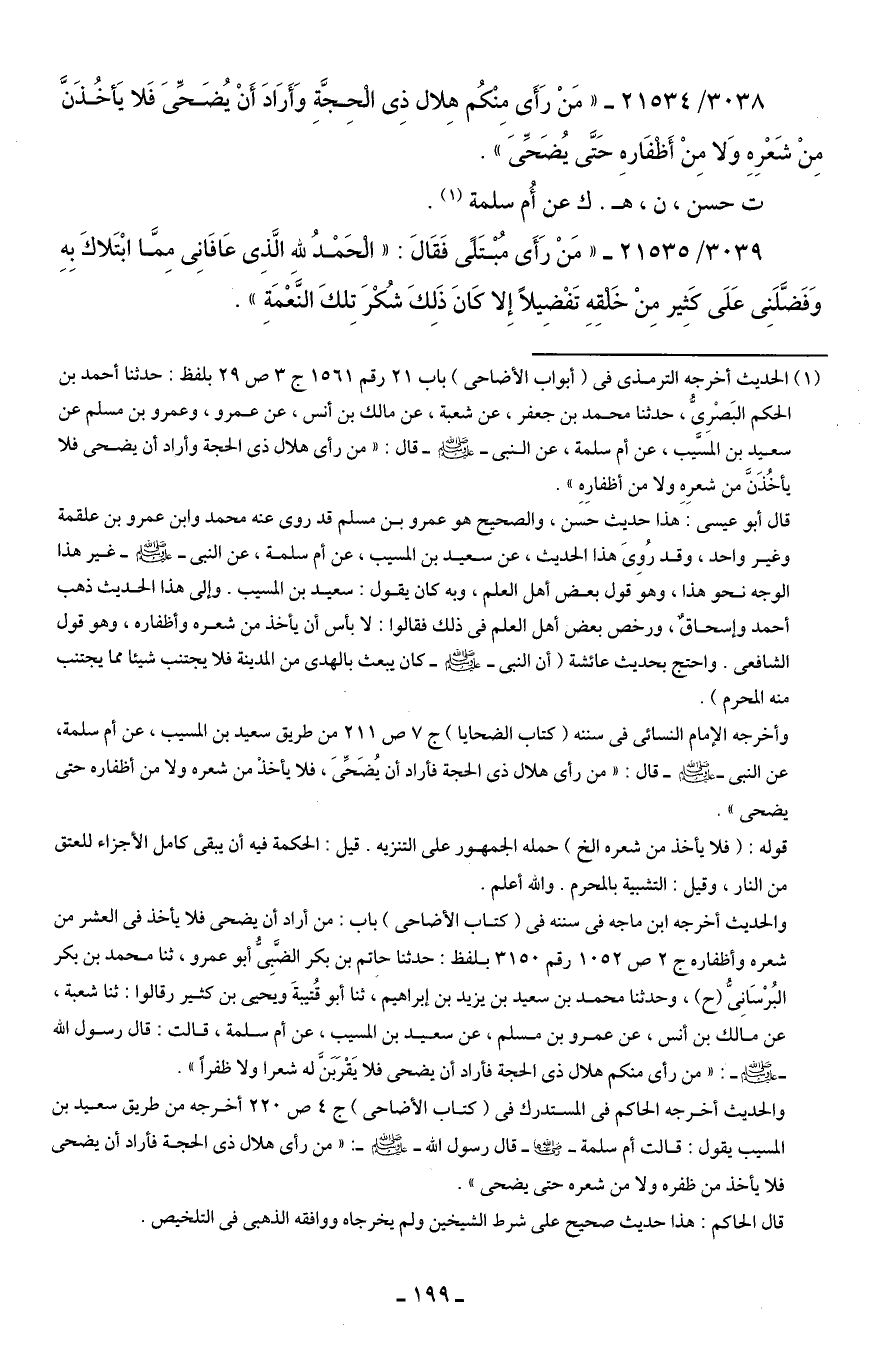 ٣٠٣٨/ ٢١٥٣٤ ـ « مَنْ رَأَى مِنْكُم هِلال ذِى الْحِجَّةِ وَأَرَادَ أَنْ يُضَحِّىَ فَلا يَأخُذَنَّ
مِنْ شَعْرِهِ وَلا مِنْ أَظْفَارِهِ حَتَّى يُضَحِّىَ » .
ت حسن ، ن ، هـ . ك عن أُم سلمة (١) .
٣٠٣٩/ ٢١٥٣٥ ـ « مَنْ رَأَى مُبْتَلًى فَقَالَ : « الْحَمْدُ للهِ الَّذِى عَافَانِى مِمَّا ابْتَلاكَ بِهِ
وَفَضَّلَنِى عَلَى كَثِيرٍ مِنْ خَلْقِهِ تَفْضِيلاً إِلا كَانَ ذَلِكَ شُكْرَ تِلكَ النَّعْمَةِ » .
(١) الحديث أخرجه الترمذى فى ( أبواب الأضاحى ) باب ٢١ رقم ١٥٦١ ج ٣ ص ٢٩ بلفظ : حدثنا أحمد بن
الحكم البَصْرِىُّ ، حدثنا محمد بن جعفر ، عن شعبة ، عن مالك بن أنس ، عن عمرو ، وعمرو بن مسلم عن
سعيد بن المسَّيب ، عن أم سلمة ، عن النبى ـ ﷺ ـ قال : « من رأى هلال ذى الحجة وأراد أن يضحى فلا
يأخُذَنَّ من شعرِه ولا من أظفارِه » .
قال أبو عيسى : هذا حديث حسن ، والصحيح هو عمرو بن مسلم قد روى عنه محمد وابن عمرو بن علقمة
وغير واحد ، وقد رُوِىَ هذا الحديث ، عن سعيد بن المسيب ، عن أم سلمة ، عن النبى ـ ﷺ ـ غير هذا
الوجه نحو هذا ، وهو قول بعض أهل العلم ، وبه كان يقول : سعيد بن المسيب . وإلى هذا الحديث ذهب
أحمد وإسحاقٌ ، ورخص بعض أهل العلم فى ذلك فقالوا : لا بأس أن يأخذ من شعره وأظفاره ، وهو قول
الشافعى . واحتج بحديث عائشة ( أن النبى ـ ﷺ ـ كان يبعث بالهدى من المدينة فلا يجتنب شيئا مما يجتنب
منه المحرم ) .
وأخرجه الإمام النسائى فى سننه ( كتاب الضحايا ) ج ٧ ص ٢١١ من طريق سعيد بن المسيب ، عن أم سلمة،
عن النبى ـ ﷺ ـ قال : « من رأى هلال ذى الحجة فأراد أن يُضَحِّىَ ، فلا يأخذْ من شعره ولا من أظفاره حتى
يضحى » .
قوله : ( فلا يأخذ من شعره الخ ) حمله الجمهور على التنزيه . قيل : الحكمة فيه أن يبقى كامل الأجزاء للعتق
من النار ، وقيل : التشبية بالمحرم . والله أعلم .
والحديث أخرجه ابن ماجه فى سننه فى ( كتاب الأضاحى ) باب : من أراد أن يضحى فلا يأخذ فى العشر من
شعره وأظفاره ج ٢ ص ١٠٥٢ رقم ٣١٥٠ بلفظ : حدثنا حاتم بن بكر الضَّبِىُّ أبو عمرو ، ثنا محمد بن بكر
البُرْسَانِىُّ (ح) ، وحدثنا محمد بن سعيد بن يزيد بن إبراهيم ، ثنا أبو قُتيبةَ ويحيى بن كثير رقالوا : ثنا شعبة ،
عن مالك بن أنس ، عن عمرو بن مسلم ، عن سعيد بن المسيب ، عن أم سلمة ، قالت : قال رسول الله
ـ ﷺ ـ : « من رأى منكم هلال ذى الحجة فأراد أن يضحى فلا يَقْرَبَنَّ له شعرا ولا ظفراً » .
والحديث أخرجه الحاكم فى المستدرك فى ( كتاب الأضاحى ) ج ٤ ص ٢٢٠ أخرجه من طريق سعيد بن
المسيب يقول : قالت أم سلمة ـ رضي الله عنها ـ قال رسول الله ـ ﷺ ـ: « من رأى هلال ذى الحجة فأراد أن يضحى
فلا يأخذ من ظفره ولا من شعره حتى يضحى » .
قال الحاكم : هذا حديث صحيح على شرط الشيخين ولم يخرجاه ووافقه الذهبى فى التلخيص .
ـ ١٩٩ ـ